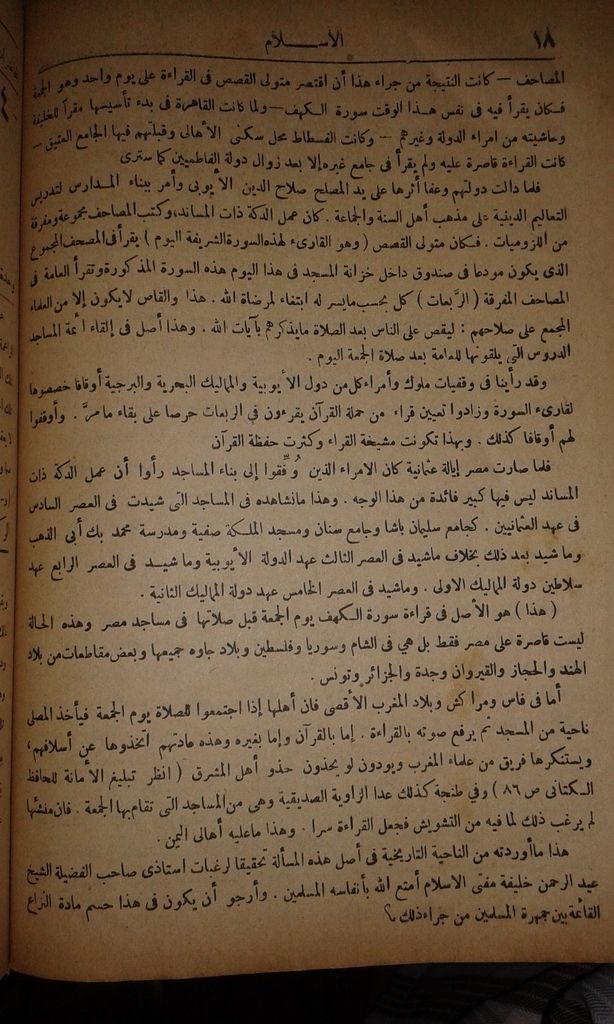 ١٨
الأســـلام
المصاحف — كانت النتيجة من جراء هذا أن اقتصر متولى القصص فى القراءة على يوم واحد وهو الجمعة
فكان يقرأ فيه فى نفس هذا الوقت سورة الكهف — ولما كانت القاهرة فى بدء تأسيسها مقراً للخليفة
وحاشيته من امراء الدولة وغيرهم — وكانت الفسطاط محل سكنى الأهالى وقبلتهم فيها الجامع العتيق —
كانت القراءة قاصرة عليه ولم يقرأ فى جامع غيره إلا بعد زوال دولة الفاطميين كما سترى
فلما دالت دولتهم وعفا أثرها على يد المصلح صلاح الدين الأيوبى وأمر ببناء المدارس لتدريس
التعاليم الدينية على مذهب أهل السنة والجماعة . كان عمل الدكة ذات المساند، وكتب المصاحف مجموعة ومفرقة
من اللزوميات . فكان متولى القصص ( وهو القارىء لهذه السورة الشريفة اليوم ) يقرأ فى المصحف المجموع
الذى يكون مودعا فى صندوق داخل خزانة المسجد فى هذا اليوم هذه السورة المذكورة وتقرأ العامة فى
المصاحف المفرقة ( الربعات ) كل بحسب مايسر له ابتغاء لمرضاة الله . هذا والقاص لايكون إلا من العلماء
المجمع على صلاحهم : ليقص على الناس بعد الصلاة مايذكرهم بآيات الله . وهذا أصل فى إلقاء أئمة المساجد
الدروس التى يلقونها للعامة بعد صلاة الجمعة اليوم .
وقد رأينا فى وقفيات ملوك وأمراء كل من دول الأيوبية والمماليك البحرية والبرجية أوقافا خصصوها
لقارىء السورة وزادوا تعيين قراء من حملة القرآن يقرءون فى الربعات حرصا على بقاء مامرَّ . وأوقفوا
لهم أوقافا كذلك . وبهذا تكونت مشيخة القراء وكثرت حفظة القرآن
فلما صارت مصر إيالة عثمانية كان الامراء الذين وُفِّقوا إلى بناء المساجد رأوا أن عمل الدكة ذات
المساند ليس فيها كبير فائدة من هذا الوجه . وهذا مانشاهده فى المساجد التى شيدت فى العصر السادس
فى عهد العثمانيين . كجامع سليمان باشا وجامع سنان ومسجد الملكة صفية ومدرسة محمد بك أبى الذهب
وما شيد بعد ذلك بخلاف ماشيد فى العصر الثالث عهد الدولة الأيوبية وما شيد فى العصر الرابع عهد
سلاطين دولة المماليك الاولى . وماشيد فى العصر الخامس عهد دولة المماليك الثانية .
( هذا ) هو الأصل فى قراءة سورة الكهف يوم الجمعة قبل صلاتها فى مساجد مصر وهذه الحالة
ليست قاصرة على مصر فقط بل هى فى الشام وسوريا وفلسطين وبلاد جاوه جميعها وبعض مقاطعات من بلاد
الهند والحجاز والقيروان وجدة والجزائر وتونس .
أما فى فاس ومراكش وبلاد المغرب الأقصى فان أهلها إذا اجتمعوا للصلاة يوم الجمعة فيأخذ المصلى
ناحية من المسجد ثم يرفع صوته بالقراءة . إما بالقرآن وإما بغيره وهذه عادتهم اتخذوها عن أسلافهم،
ويستنكرها فريق من علماء المغرب ويودون لو يحذون حذو أهل المشرق ( انظر تبليغ الأمانة للحافظ
الكتانى ص ٨٦ ) وفى طنجة كذلك عدا الزاوية الصديقية وهى من المساجد التى تقام بها الجمعة . فان منشئها
لم يرغب ذلك لما فيه من التشويش فجعل القراءة سرا . وهذا ماعليه أهالى اليمن .
هذا ماأوردته من الناحية التاريخية فى أصل هذه المسألة تحقيقا لرغبات استاذى صاحب الفضيلة الشيخ
عبد الرحمن خليفة مفتى الاسلام أمتع الله بأنفاسه المسلمين . وأرجو أن يكون فى هذا حسم مادة النزاع
القائمة بين جمهرة المسلمين من جراء ذلك